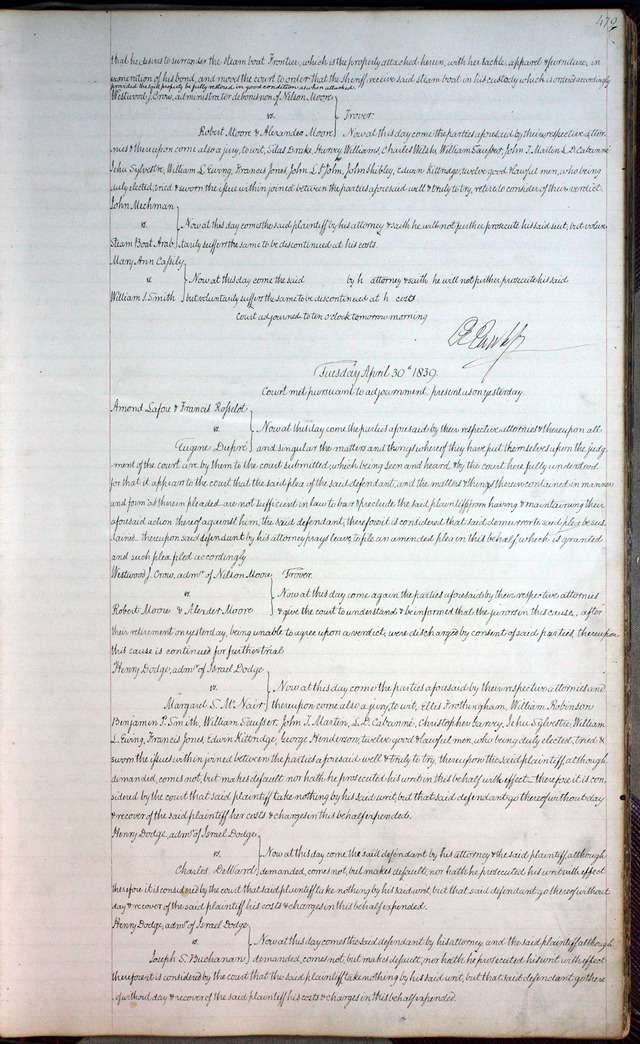 479
that he desires to surrender the steam boat Frontier, which is the property attached herein, with her tackle, apparel & furniture, in
exoneration of his bond, and moves the court to order that the sheriff receive said steam boat in his custody which is ordered accordingly
provided the said property be fully restored in good condition as when attached.
Westwood J. Crow, administrator de bonis non of Nelson Moore
vs. Trover
Robert Moore & Alexander Moore Now at this day come the parties aforesaid by their respective attor-
nies & thereupon come also a jury, to wit, Silas Drake, Harvy Williams, Charles Welsh, William Sausser, John J. Martin, L. D. Cabanné
Jehu Sylvestre, William L. Ewing, Francis Jones, John L. St John, John Shibley, Edwin Kittridge, twelve good & lawful men, who being
duly elected, tried & sworn the issue within joined between the parties aforesaid well & truly to try, retire to consider of their verdict.
John Mechman
vs. Now at this day comes the said plaintiff by his attorney & saith he will not further prosecute his said suit, but volun-
Steam Boat Arab tarily suffers the same to be discontinued at his costs.
Mary Ann Cassily
vs Now at this day come the said by h attorney & saith he will not further prosecute his said
William S. Smith but voluntarily suffer the same to be discontinued at h costs
Court adjourned to ten o'clock tomorrow morning
Tuesday April 30th 1839.
Court met pursuant to adjournment, present as on yesterday.
Amond Lafou & Francis Rosselot
vs. Now at this day come the parties aforesaid by their respective attornies & thereupon all
Eugene Dupré and singular the matters and things whereof they have put themselves upon the judg-
ment of the court are by them to the court submitted, which being seen and heard & by the court here fully understood
for that it appears to the court that the said plea of the said defendant, and the matters & things therein contained in manner
and form as therein pleaded are not sufficient in law to bar & preclude the said plaintiffs from having & maintaining their
aforesaid action thereof against him, the said defendant, therefore it is considered that said demurrer to said plea be sus-
tained. thereupon said defendant by his attorney prays leave to file an amended plea in this behalf which is granted
and such plea filed accordingly
Westwood J. Crow, admr. of Nelson Moore Trover.
vs. Now at this day come again the parties aforesaid by their respective attornies
Robert Moore & Alexder Moore & give the court to understand & be informed that the jurors in this cause, after
their retirement on yesterday, being unable to agree upon a verdict, were discharged by consent of said parties, thereupon
this cause is continued for further trial
Henry Dodge, admr. of Israel Dodge
vs. Now at this day come the parties aforesaid by their respective attornies and
Margaret S. McNair thereupon come also a jury, to wit, Ellis Frothingham, William Robinson
Benjamin P. Smith, William Sausser, John J. Martin, L. D. Cabanné, Christopher Garvey, Jehu Sylvestre, William
L. Ewing, Francis Jones, Edwin Kittridge, George Henderson, twelve good & lawful men, who being duly elected, tried &
sworn the issues within joined between the parties aforesaid well & truly to try, thereupon the said plaintiff although
demanded, comes not, but makes default nor hath he prosecuted his writ in this behalf with effect – therefore it is con-
sidered by the court that said plaintiff take nothing by his said writ, but that said defendant go thereof without day
& recover of the said plaintiff her costs & charges in this behalf expended.
Henry Dodge, admr. of Israel Dodge
vs. Now at this day come the said defendant by his attorney & the said plaintiff, although
Charles DeWard demanded, comes not, but makes default, nor hath he prosecuted his writ with effect
therefore it is considered by the court that said plaintiff take nothing by his said writ, but that said defendant go thereof without
day & recover of the said plaintiff his costs & charges in this behalf expended.
Henry Dodge, admr. of Israel Dodge
vs. Now at this day comes the said defendant by his attorney, and the said plaintiff, although
Joseph S. Buchanan demanded, comes not, but makes default, nor hath he prosecuted his writ with effect
therefore it is considered by the court that the said plaintiff take nothing by his said writ, but that said defendant go there-
of without day & recover of the said plaintiff his costs & charges in this behalf expended.